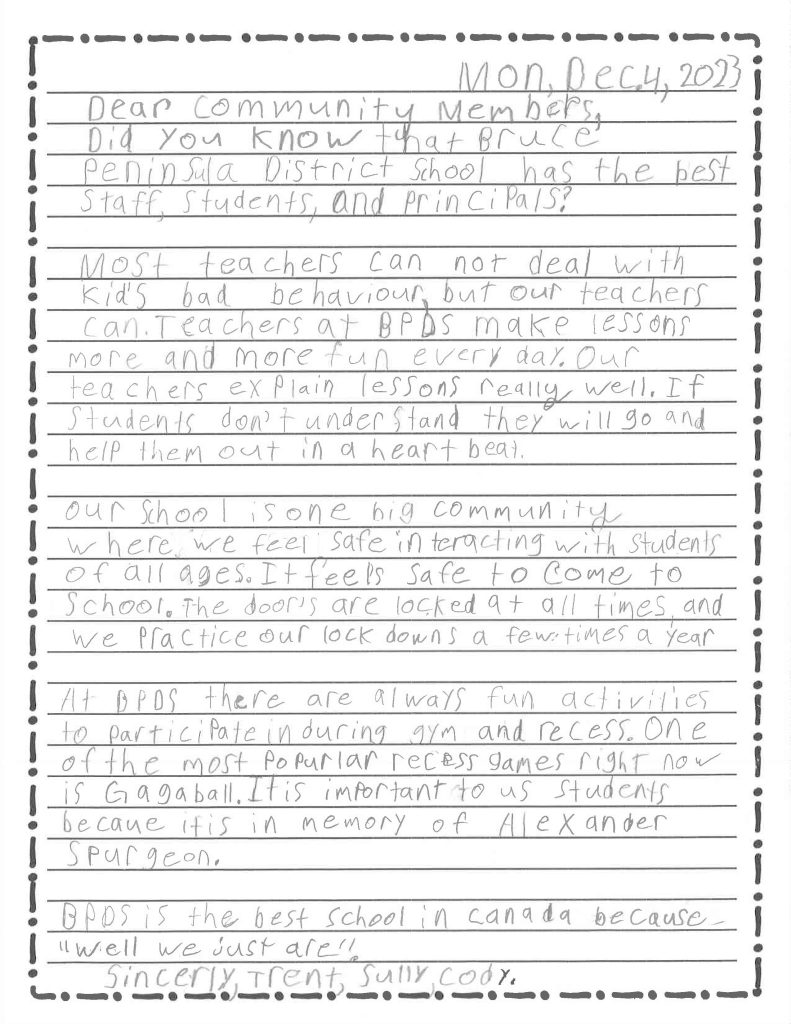 Mon, Dec.4, 2023
Dear Community Members,
Did you know that Bruce
Peninsula District School has the best
staff, students, and principals?
Most teachers can not deal with
kid's bad behaviour, but our teachers
can. Teachers at BPDS make lessons
more and more fun every day. Our
teachers explain lessons really well. If
students don't understand they will go and
help them out in a heart beat.
Our school is one big community
where we feel safe interacting with students
of all ages. It feels safe to come to
school. The door's are locked at all times, and
we practice our lock downs a few times a year
At BPDS there are always fun activities
to participate in during gym and recess. One
of the most popurlar recess games right now
is Gagaball. It is important to us students
becaue it is in memory of Alexander
Spurgeon.
BPDS is the best school in Canada because
"well we just are".
Sincerly, Trent, Sully, Cody.